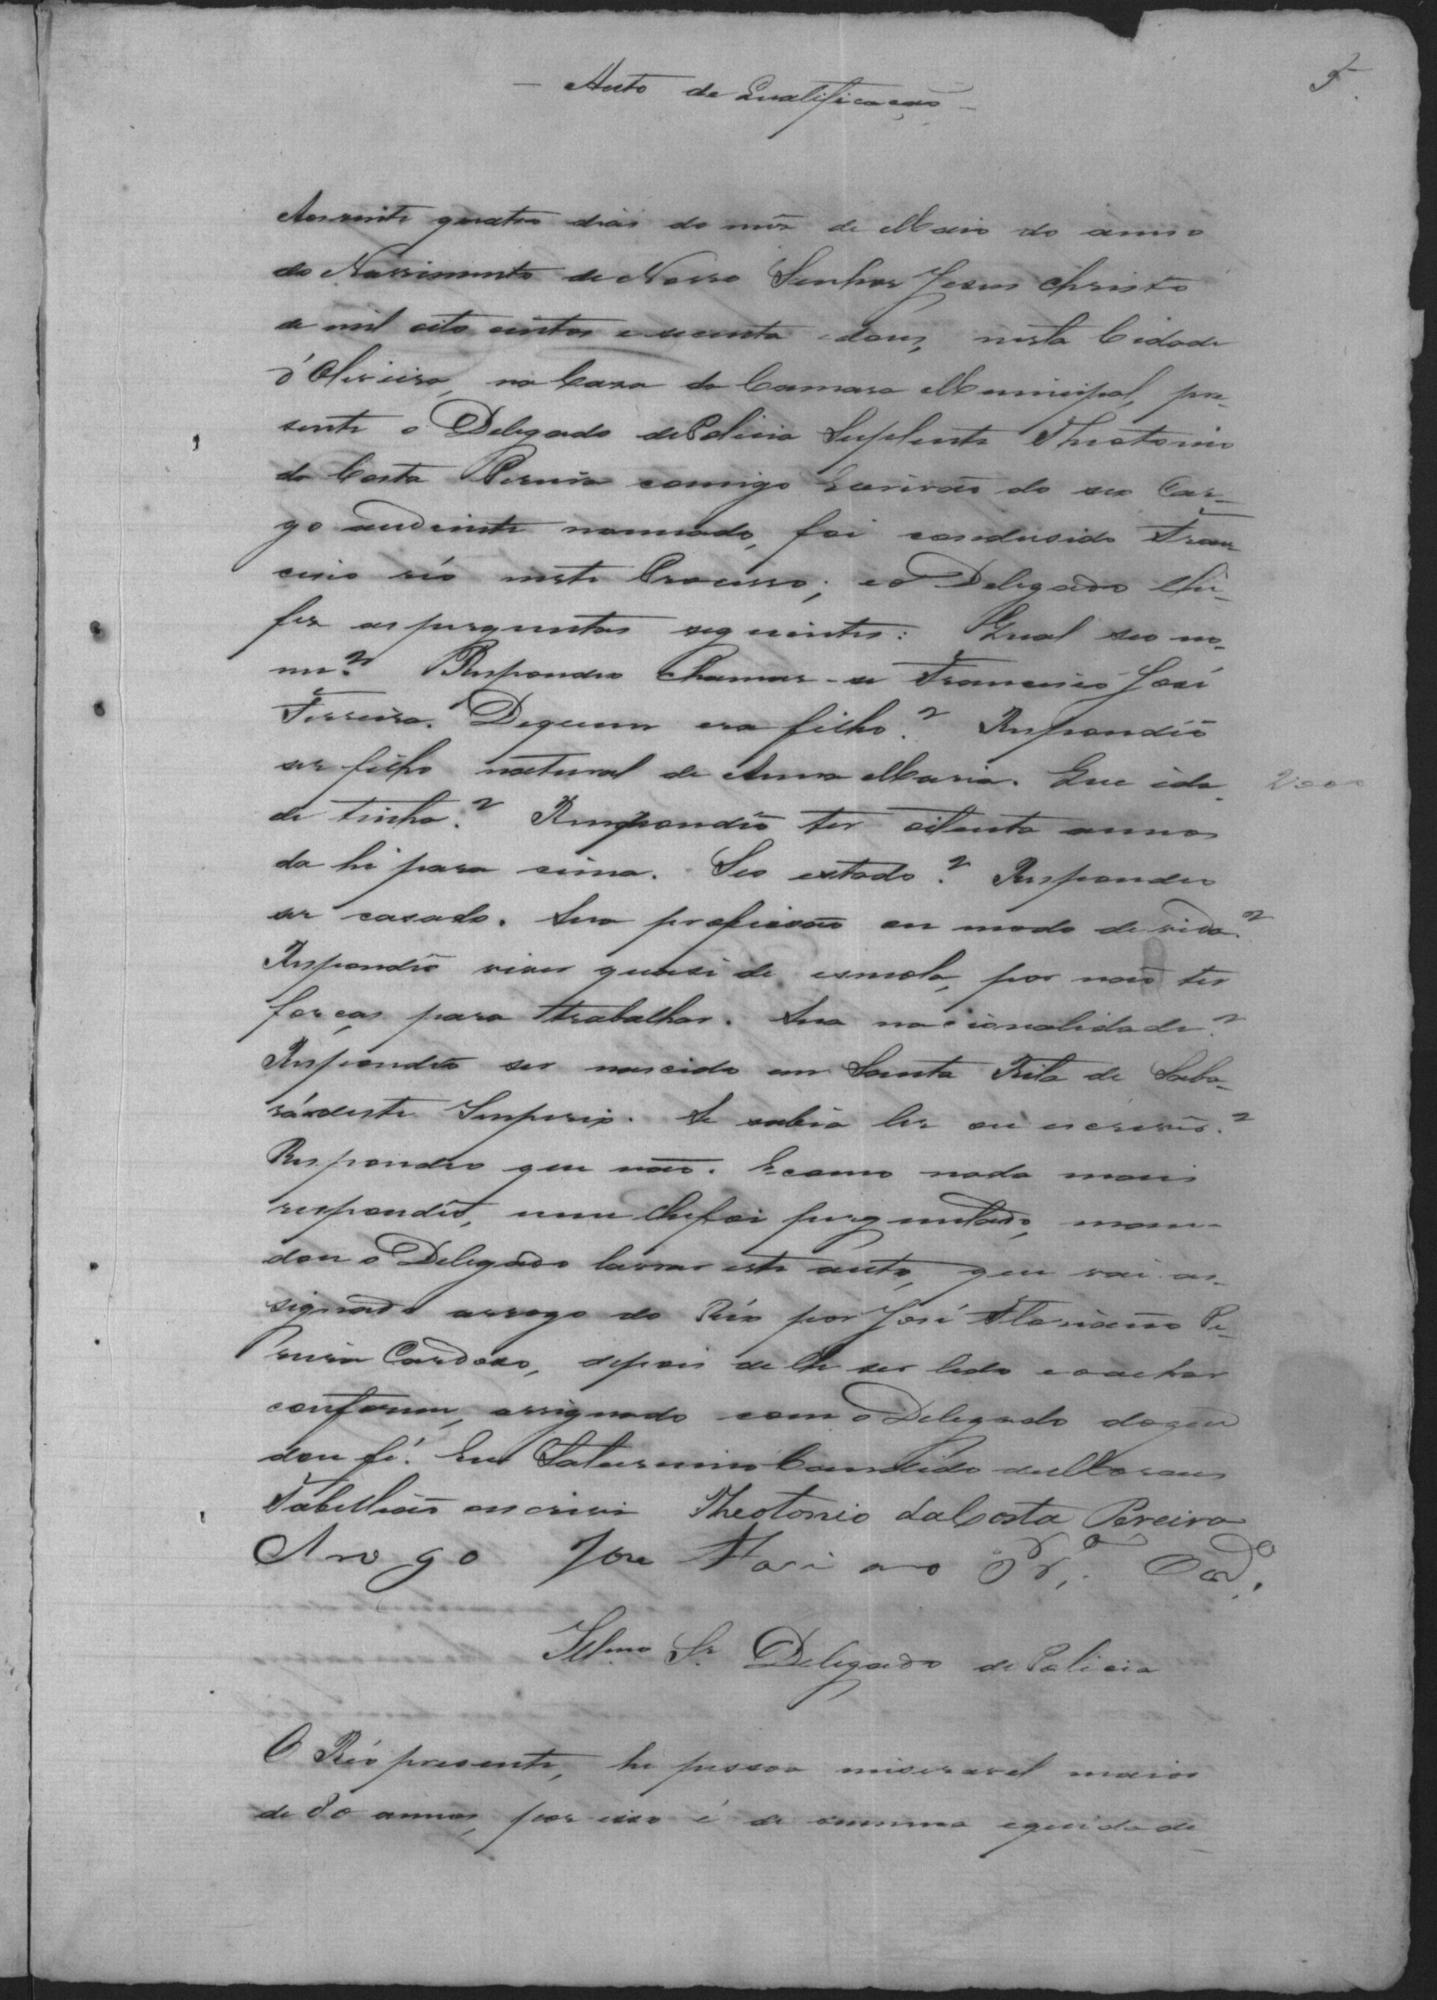 5
— Auto de Qualificação —
Aos vinte quatro dias do mês de Maio do anno
do Nassimento de Nosso Senhor Jesus Christo
de mil oito centos e secenta e dous, nesta Cidade
d'Oliveira, na Caza da Camara Municipal, pre-
sente o Delegado de Policia Suplente Theotonio
da Costa Pereira comigo Escrivão do seo Car-
go audiente nomeado, foi condusido Fran-
cisco réo neste Processo; e o Delegado lhe
fez as perguntas seguintes: Qual seo no-
me? Respondeo chamar-se Francisco José
Ferreira. De quem era filho? Respondêo
ser filho natural de Anna Maria. Que ida-
de tinha? Respondêo ter oitenta annos
da hi para cima. Seo estado? Respondeo
ser casado. Sua profissão ou modo de vida?
Respondêo viver quasi de esmola, por não ter
forças para trabalhar. Sua nacionalidade?
Respondêo ser nascido em Santa Rita de Saba-
rá deste Imperio. Se sabia ler ou escrever?
Respondeo que não. E como nada mais
respondêo, nem lhe foi perguntado, man-
dou o Delegado lavrar este auto, que vai as-
signado arrogo do Réo por José Floriano Pe-
reira Cardozo, depois de lhe ser lido e o achar
conforme, assignado com o Delegado do que
dou fé. Eu Saturnino Candido de Moraes
Tabellião escrevi Theotonio da Costa Pereira
Arogo Jose Floriano Pr.ª Card.º
Illmo Sr. Delegado de Policia
O Réo presente, he pessoa miseravel maior
de 80 annos, por isso é de summa equidade